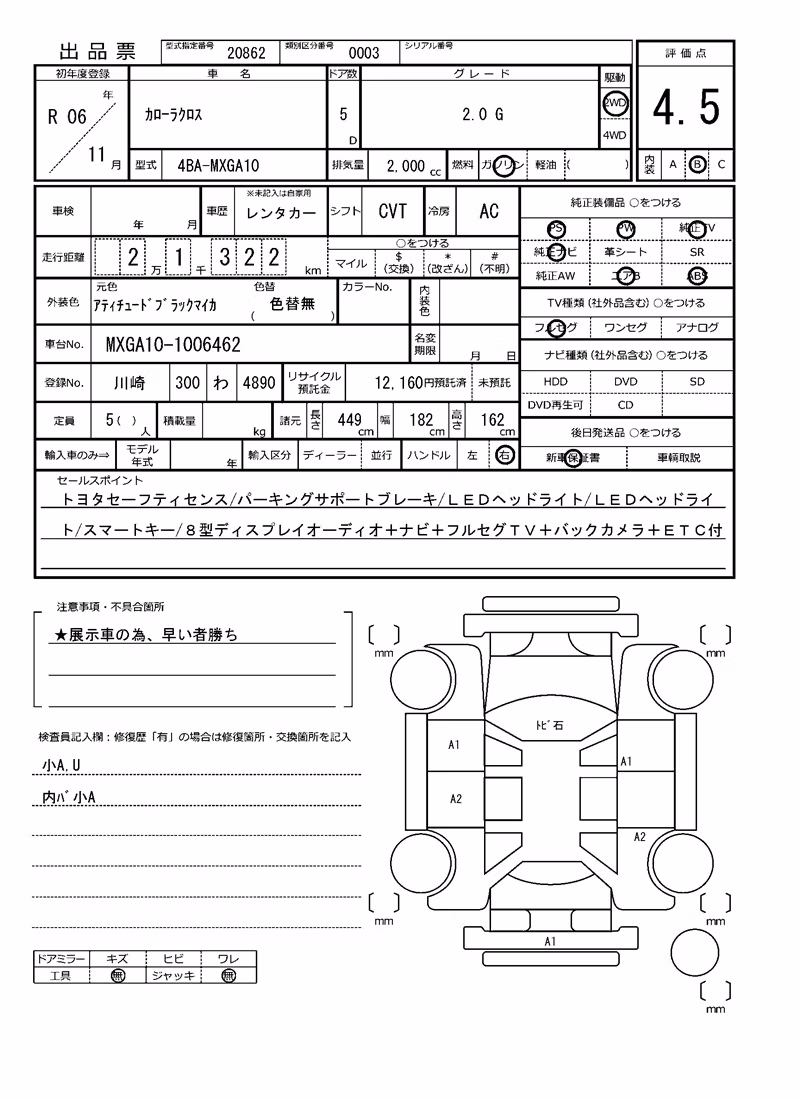 出品票 型式指定番号 20862 類別区分番号 0003 シリアル番号
評価点
4.5
内装 A B C
初年度登録 車 名 ドア数 グレード 駆動
R 06 年 11 月 カローラクロス 5 D 2.0 G 2WD
4WD
型式 4BA-MXGA10 排気量 2,000 cc 燃料 ガソリン 軽油 ( )
車検 年 月 車歴 ※未記入は自家用 レンタカー シフト CVT 冷房 AC
走行距離 2 万 1 千 3 2 2 km ○をつける
マイル $ (交換) * (改ざん) # (不明)
外装色 元色 アティチュードブラックマイカ 色替 ( 色替無 ) カラーNo. 内装色
車台No. MXGA10-1006462 名変期限 月 日
登録No. 川崎 300 わ 4890 リサイクル預託金 12,160円預託済 未預託
定員 5( ) 人 積載量 kg 諸元 長さ 449 cm 幅 182 cm 高さ 162 cm
輸入車のみ⇒ モデル年式 年 輸入区分 ディーラー 並行 ハンドル 左 右
純正装備品 ○をつける
PS PW 純正TV
純正ナビ 革シート SR
純正AW エアB ABS
TV種類 (社外品含む) ○をつける
フルセグ ワンセグ アナログ
ナビ種類 (社外品含む) ○をつける
HDD DVD SD
DVD再生可 CD
後日発送品 ○をつける
新車保証書 車輌取説
セールスポイント
トヨタセーフティセンス/パーキングサポートブレーキ/ＬＥＤヘッドライト/ＬＥＤヘッドライ
ト/スマートキー/８型ディスプレイオーディオ＋ナビ＋フルセグＴＶ＋バックカメラ＋ＥＴＣ付
注意事項・不具合箇所
★展示車の為、早い者勝ち
検査員記入欄：修復歴「有」の場合は修復箇所・交換箇所を記入
小A,U
内ﾊﾞ小A
ドアミラー キズ ヒビ ワレ
工具 無 ジャッキ 無
mm mm
ﾄﾋﾞ石
A1
A1
A2
A2
mm mm
A1
mm